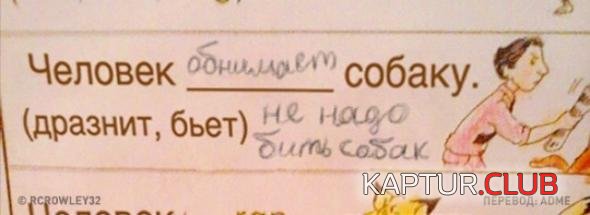 Человек обнимает собаку.
(дразнит, бьет) не надо
бить собак
KAPTUR.CLUB
© RCROWLEY32
ПЕРЕВОД: ADME
Человек